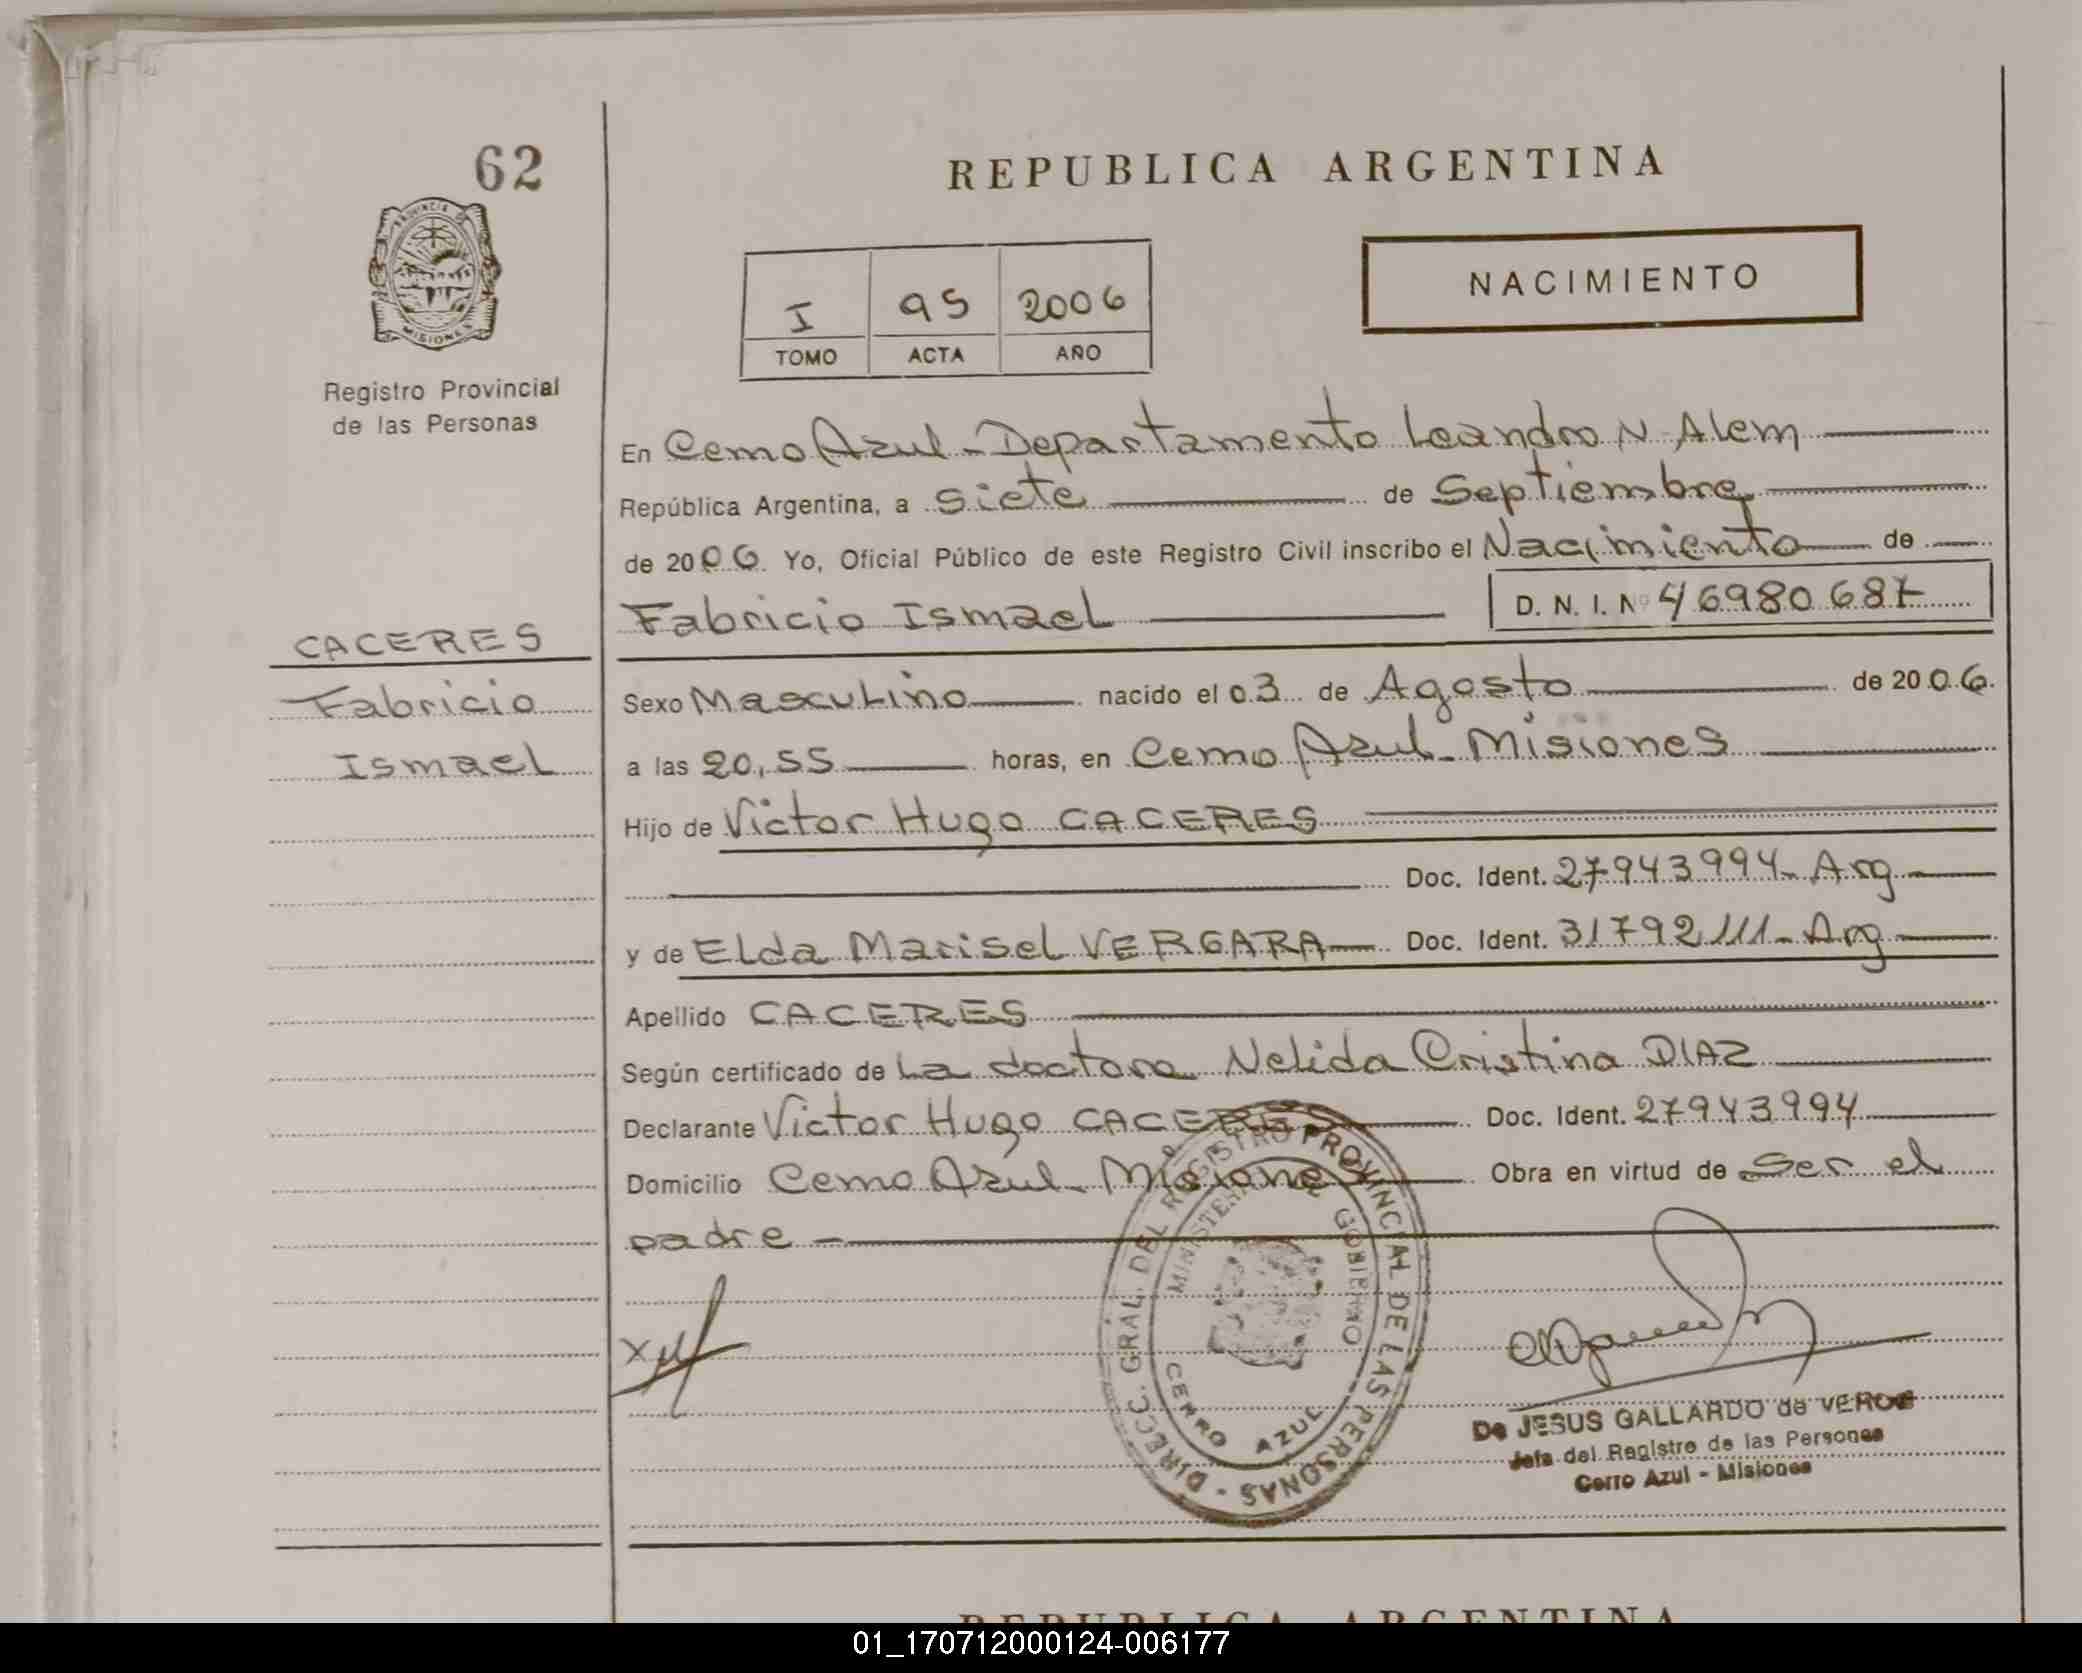 62
REPUBLICA ARGENTINA
PROVINCIA DE
MISIONES
NACIMIENTO
I 95 2006
TOMO ACTA AÑO
Registro Provincial
de las Personas
En Cerro Azul - Departamento Leandro N. Alem
República Argentina, a siete de Septiembre
de 2006 Yo, Oficial Público de este Registro Civil inscribo el Nacimiento de
Fabricio Ismael D. N. I. Nº 46980687
CACERES
Fabricio
Ismael
Sexo Masculino nacido el 03 de Agosto de 2006.
a las 20,55 horas, en Cerro Azul - Misiones
Hijo de Victor Hugo CACERES
Doc. Ident. 27943994 - Arg
y de Elda Marisel VERGARA Doc. Ident. 31792111 - Arg
Apellido CACERES
Según certificado de La doctora Nelida Cristina DIAZ
Declarante Victor Hugo CACERES Doc. Ident. 27943994
Domicilio Cerro Azul - Misiones Obra en virtud de ser el
padre
DIRECC. GRAL. DEL REGISTRO PROVINCIAL DE LAS PERSONAS -
GOBIERNO
CERRO AZUL
De JESUS GALLARDO de
Jefa del Registro de las Personas
Cerro Azul - Misiones
REPUBLICA ARGENTINA
01_170712000124-006177